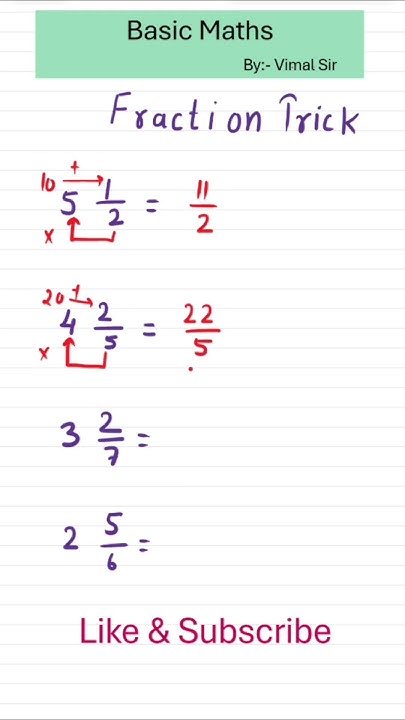 Basic Maths
By:- Vimal Sir
Fraction Trick
10 +
5 1/2 = 11/2
x
20 +
4 2/5 = 22/5
x
3 2/7 =
2 5/6 =
Like & Subscribe